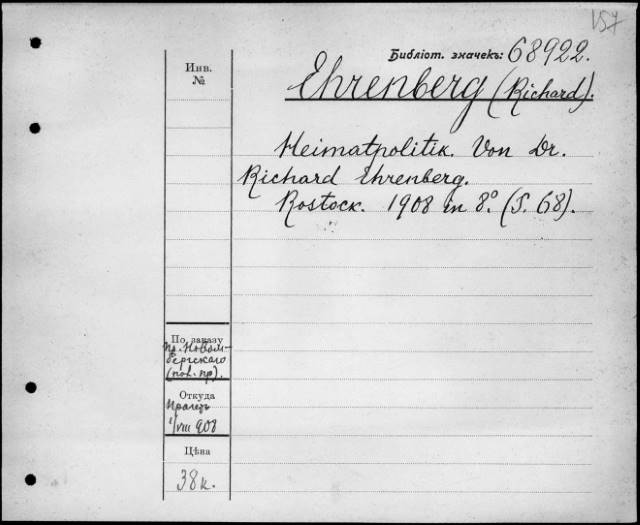 157
Библіот. значекъ: 68922.
Инв.
№
Ehrenberg (Richard).
Heimatpolitik. Von Dr.
Richard Ehrenberg.
Rostock. 1908 in 8º. (S. 68).
По заказу
пр. Новом-
бергскаго
(пол. пр).
Откуда
1/VIII 908
Цѣна
38 к.